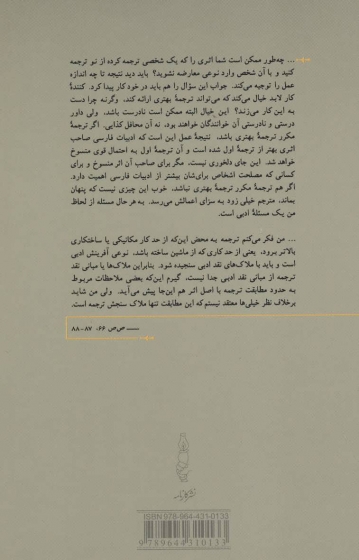 ... چه‌طور ممکن است شما اثری را که یک شخصی ترجمه کرده از نو ترجمه
کنید و با آن شخص وارد نوعی معارضه نشوید؟ باید دید نتیجه تا چه اندازه
عمل را توجیه می‌کند. جواب این سؤال را هم باید در خود کار پیدا کرد. کنندهٔ
کار لابد خیال می‌کند که می‌تواند ترجمهٔ بهتری ارائه کند، وگرنه چرا دست
به این کار می‌زند؟ این خیال البته ممکن است نادرست باشد، ولی داور
درستی و نادرستی آن خوانندگان خواهند بود، نه آن محافل کذایی. اگر ترجمهٔ
مکرر ترجمهٔ بهتری باشد، نتیجهٔ عمل این است که ادبیات فارسی صاحب
اثری بهتر از ترجمهٔ اول شده است و آن ترجمهٔ اول به احتمال قوی منسوخ
خواهد شد. این جای دلخوری نیست، مگر برای صاحب آن اثر منسوخ و برای
کسانی که مصلحت اشخاص برای‌شان بیشتر از ادبیات فارسی اهمیت دارد.
اگر هم ترجمهٔ مکرر ترجمهٔ بهتری نباشد، خوب این چیزی نیست که پنهان
بماند، مترجم خیلی زود به سزای اعمالش می‌رسد. به هر حال مسئله از لحاظ
من یک مسئلهٔ ادبی است.
... من فکر می‌کنم ترجمه به محض این‌که از حد کار مکانیکی یا ساختکاری
بالاتر برود، یعنی از حد کاری که از ماشین ساخته باشد، نوعی آفرینش ادبی
است و باید با ملاک‌های نقد ادبی سنجیده شود. بنابراین ملاک‌ها یا مبانی نقد
ترجمه از مبانی نقد ادبی جدا نیست، گیرم این‌که بعضی ملاحظات مربوط
به حدود مطابقت ترجمه با اصل اثر هم این‌جا پیش می‌آید. ولی من شاید
برخلاف نظر خیلی‌ها معتقد نیستم که این مطابقت تنها ملاک سنجش ترجمه است.
ــــ صص ۶۶، ۸۷-۸۸
نشر کارنامه
ISBN 978-964-431-0133
9789644310133